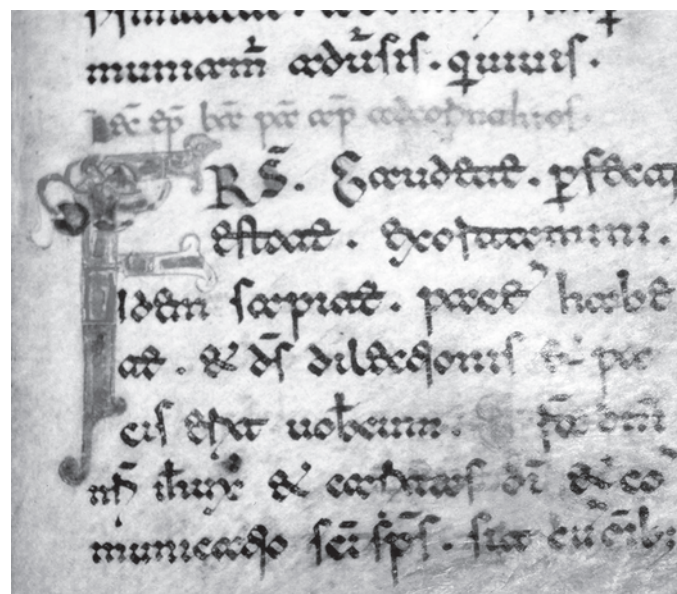 municam̄ adūsis. quiuis.
Lec̄ ep̄ b̄ pau ap̄ ad corinthios.
FRS̄. Gaudete. ꝑfecti
estote. Exortamini.
Idem sapite. pacē habe
te. & d̄s dilectionis & pa
cis erit uobcum. Gra dn̄i
nr̄i ih̄u xp̄i & caritas dī & co
municatio sc̄i sp̄s. sit cū om̄ib;